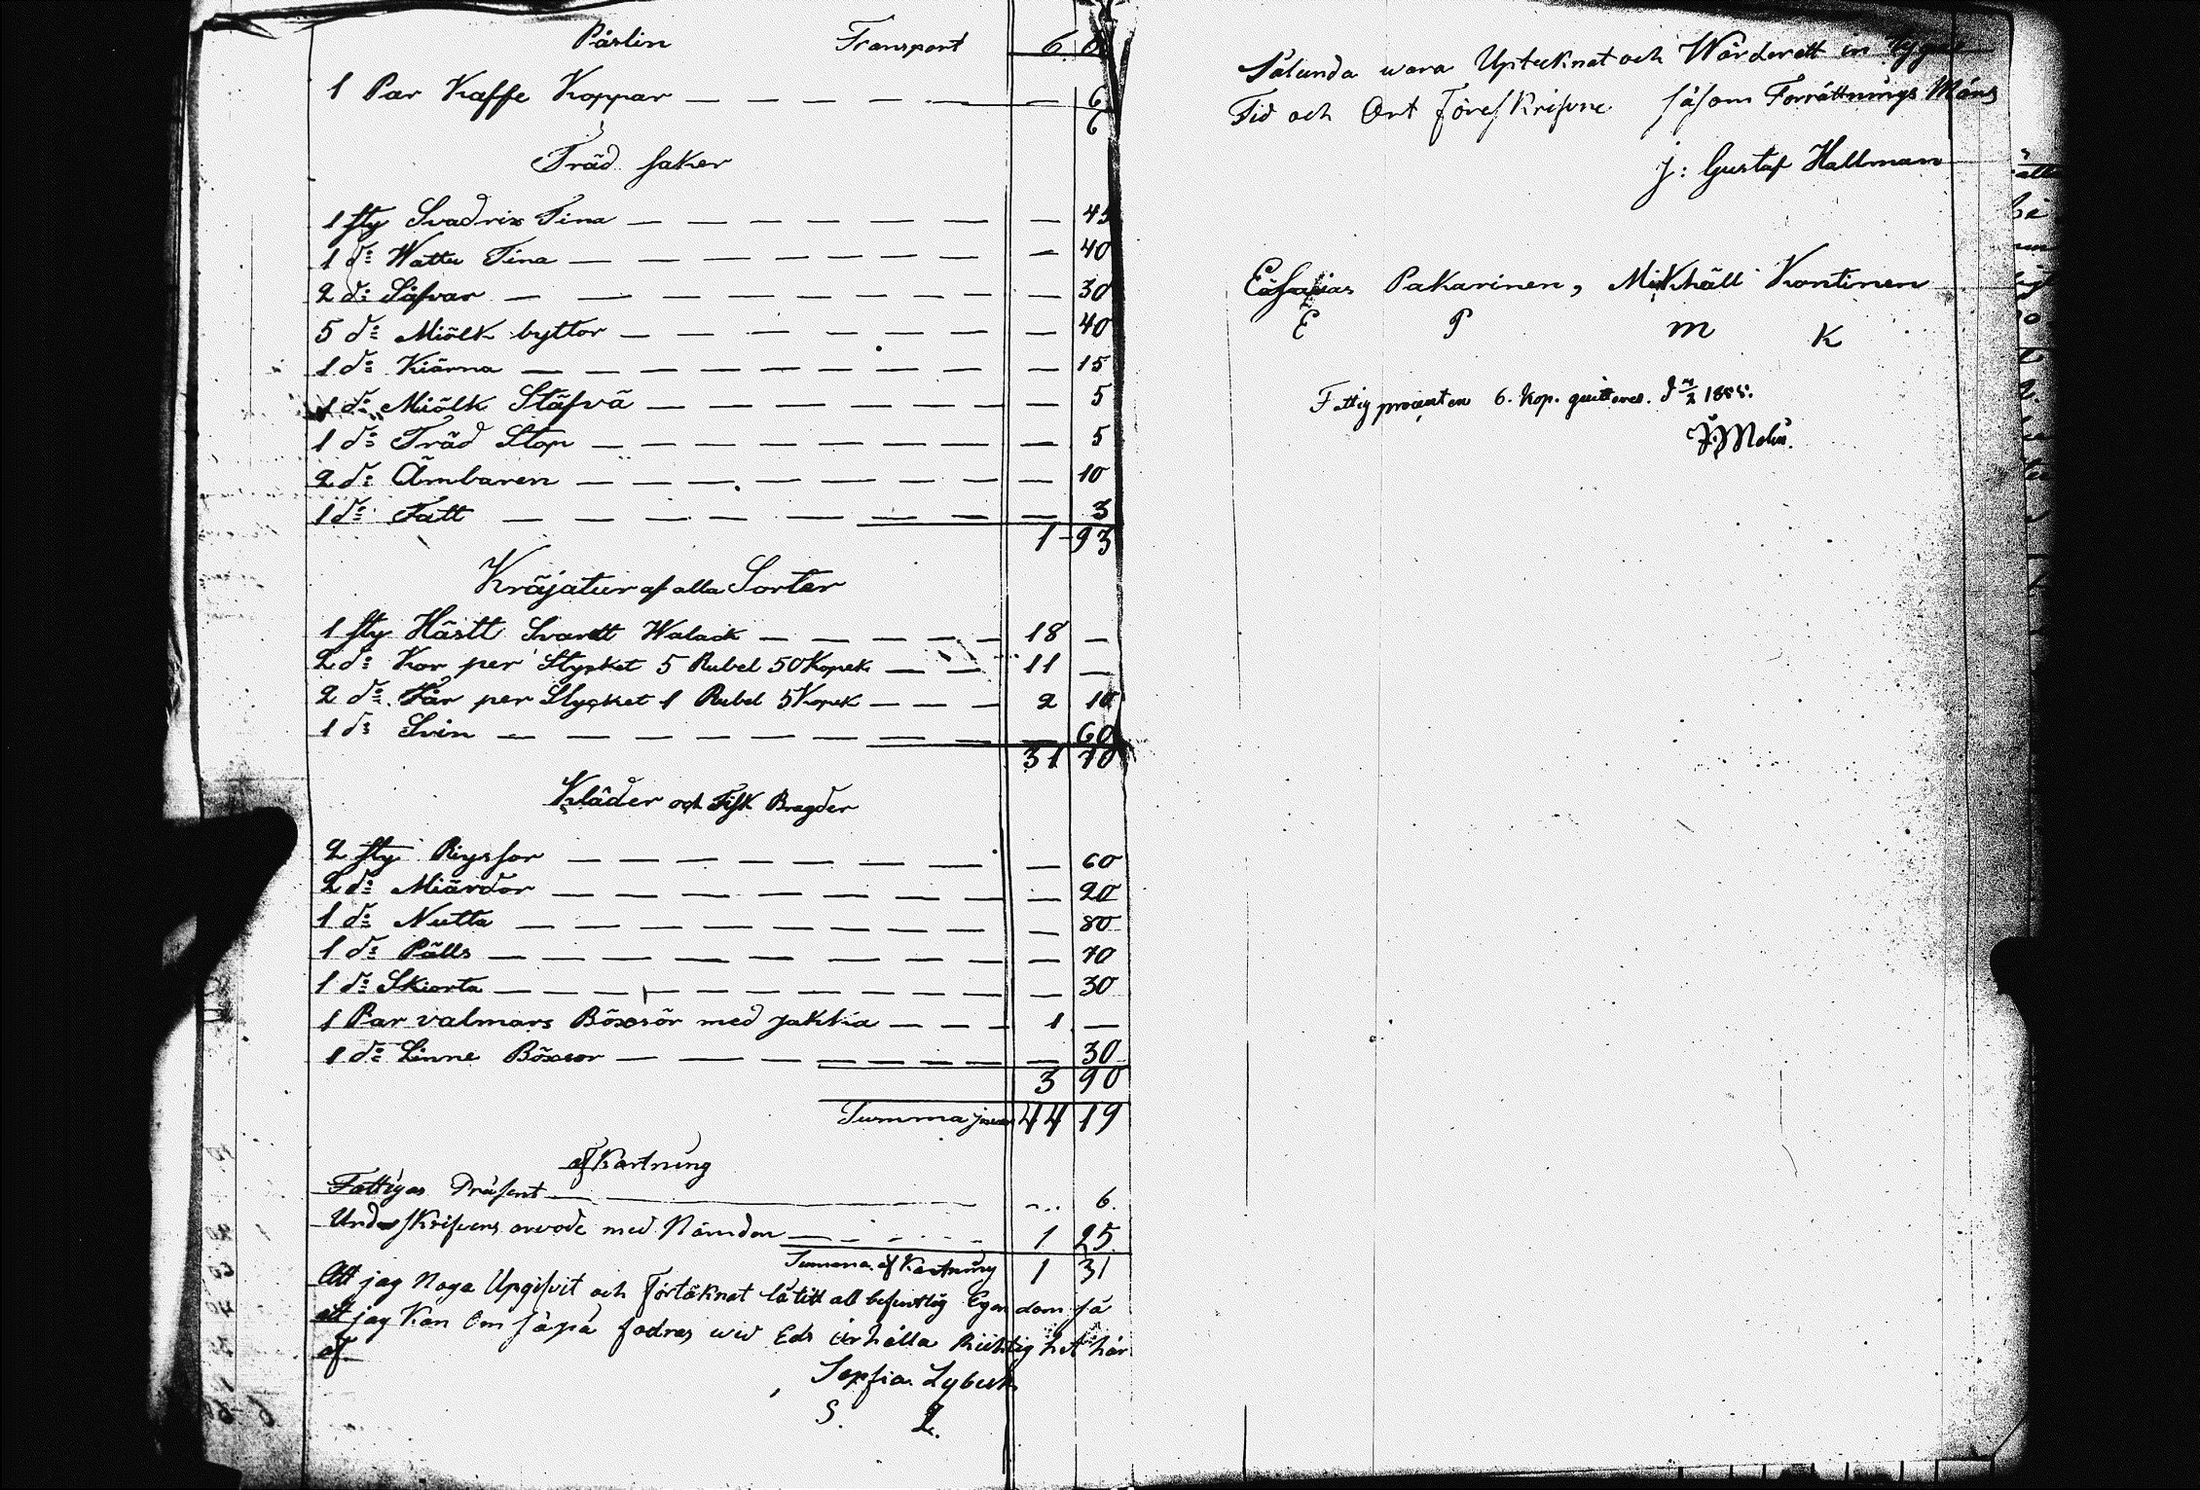 Pårslin Transport 6
1 Par Kaffe Koppar — — — — — — 6
6
Träd saker
1 sty Svadrix Tina — — — — — — 45
1 do Wattu Tina — — — — — — 40
2 do Såfvar — — — — — — 30
5 do Miölk byttor — — — — — — 40
1 do Kiärna — — — — — — 15
1 do Miölk Stäfvä — — — — — — 5
1 do Träd Stop — — — — — — 5
2 do Ämbaren — — — — — — 10
1 do Fatt — — — — — — 3
1 - 93
Kräjatur af alla Sorter
1 sty Hästt Svartt Walack — — — — — 18 —
2 do Kor per Stycket 5 Rubel 50 Kopek — — 11 —
2 do Får per Stycket 1 Rubel 5 Kopek — — — 2 10
1 do Svin — — — — — — 60
31 70
Kläder och Fisk Bragder
2 sty Riyssor — — — — — — 60
2 do Miärdor — — — — — — 20
1 do Nutta — — — — — — 80
1 do Pälls — — — — — — 70
1 do Skiorta — — — — — — 30
1 Par valmars Böxsör med jakka — — — 1 —
1 do Linne Böxsor — — — — — — 30
3 90
Summa 44 19
afkartning
Fattigas Präsent — 6.
Underskrifvens arvode med Nämdon — 1 25
Summa afkartning 1 31
Att jag Noga Upgifvit och Förtäknat låtitt all befintlig Egendom så
att jag Kan Om såpå fodras wid Eds ärhålla Richtighet här
af
Sopfia Lybeck
S. L.
Sålunda wara Upteknat och Wärderatt in
Tid och Ort föreskrifvne såsom Forrättnings Mäns
J: Gustaf Hallman
Esaias Pakarinen, Mikhäll Kontinen
E P m K
Fattig procenten 6. Kop. quitteras.